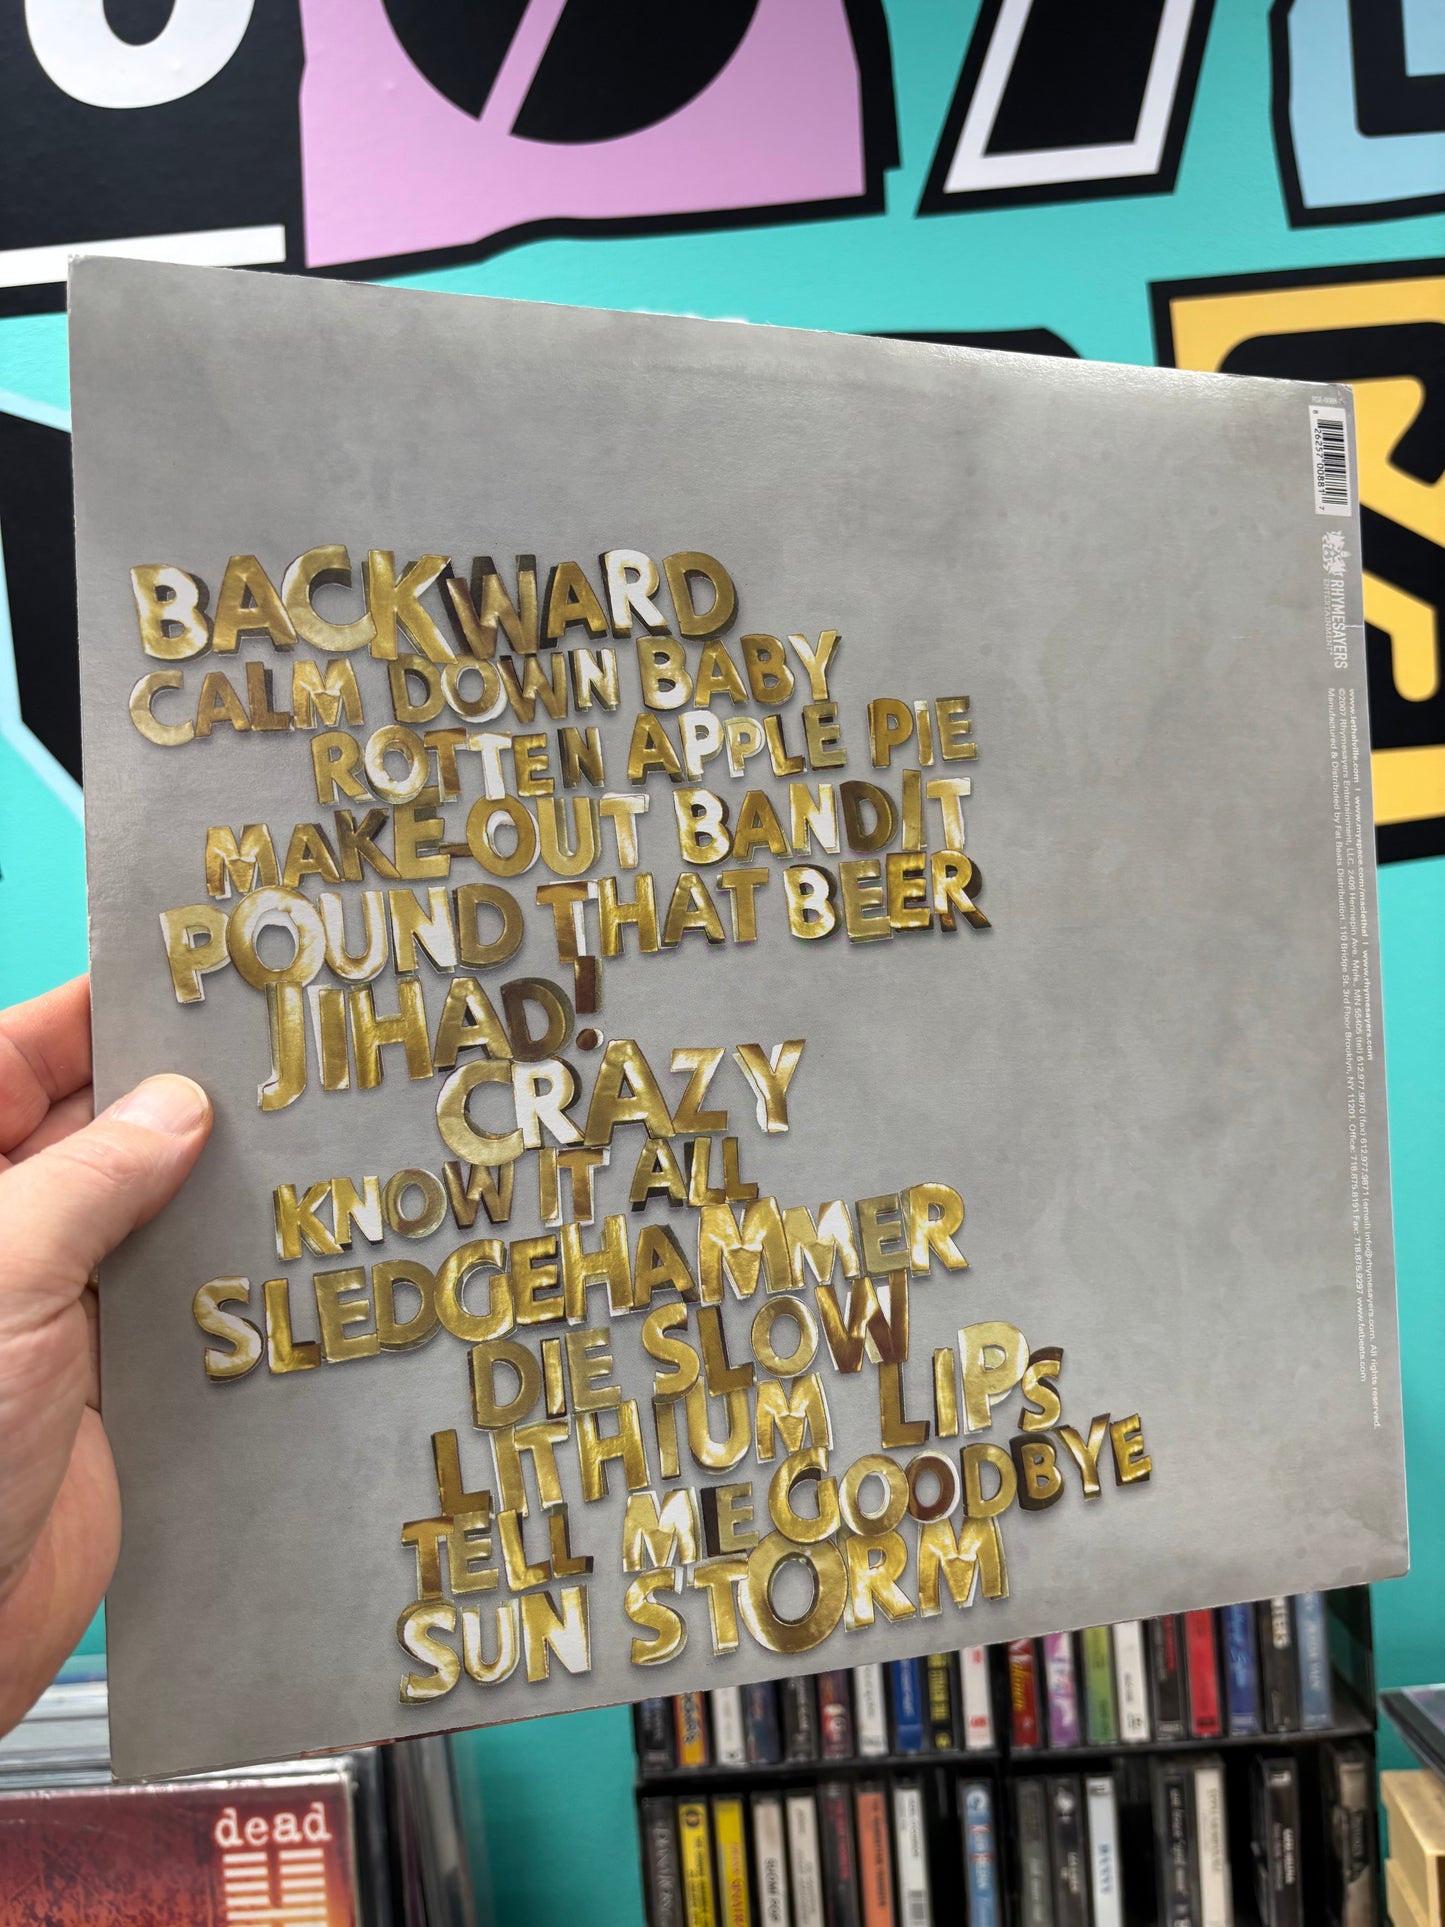 BACKWARD
CALM DOWN BABY
ROTTEN APPLE PIE
MAKE-OUT BANDIT
POUND THAT BEER
JIHAD!
CRAZY
KNOW IT ALL
SLEDGEHAMMER
DIE SLOW
LITHIUM LIPS
TELL ME GOODBYE
SUN STORM
8 26257 00881 7
RHYMESAYERS
ENTERTAINMENT
www.lethalville.com | www.myspace.com/maclethal | www.rhymesayers.com
©2007 Rhymesayers Entertainment, LLC. 2409 Hennepin Ave. Mpls., MN 55405 (tel) 612.977.9870 (fax) 612.977.9871 (email) info@rhymesayers.com. All rights reserved.
Manufactured & Distributed by Fat Beats Distribution: 110 Bridge St. 3rd Floor Brooklyn, NY 11201. Office: 718.875.8191 Fax: 718.875.9297 www.fatbeats.com
dead